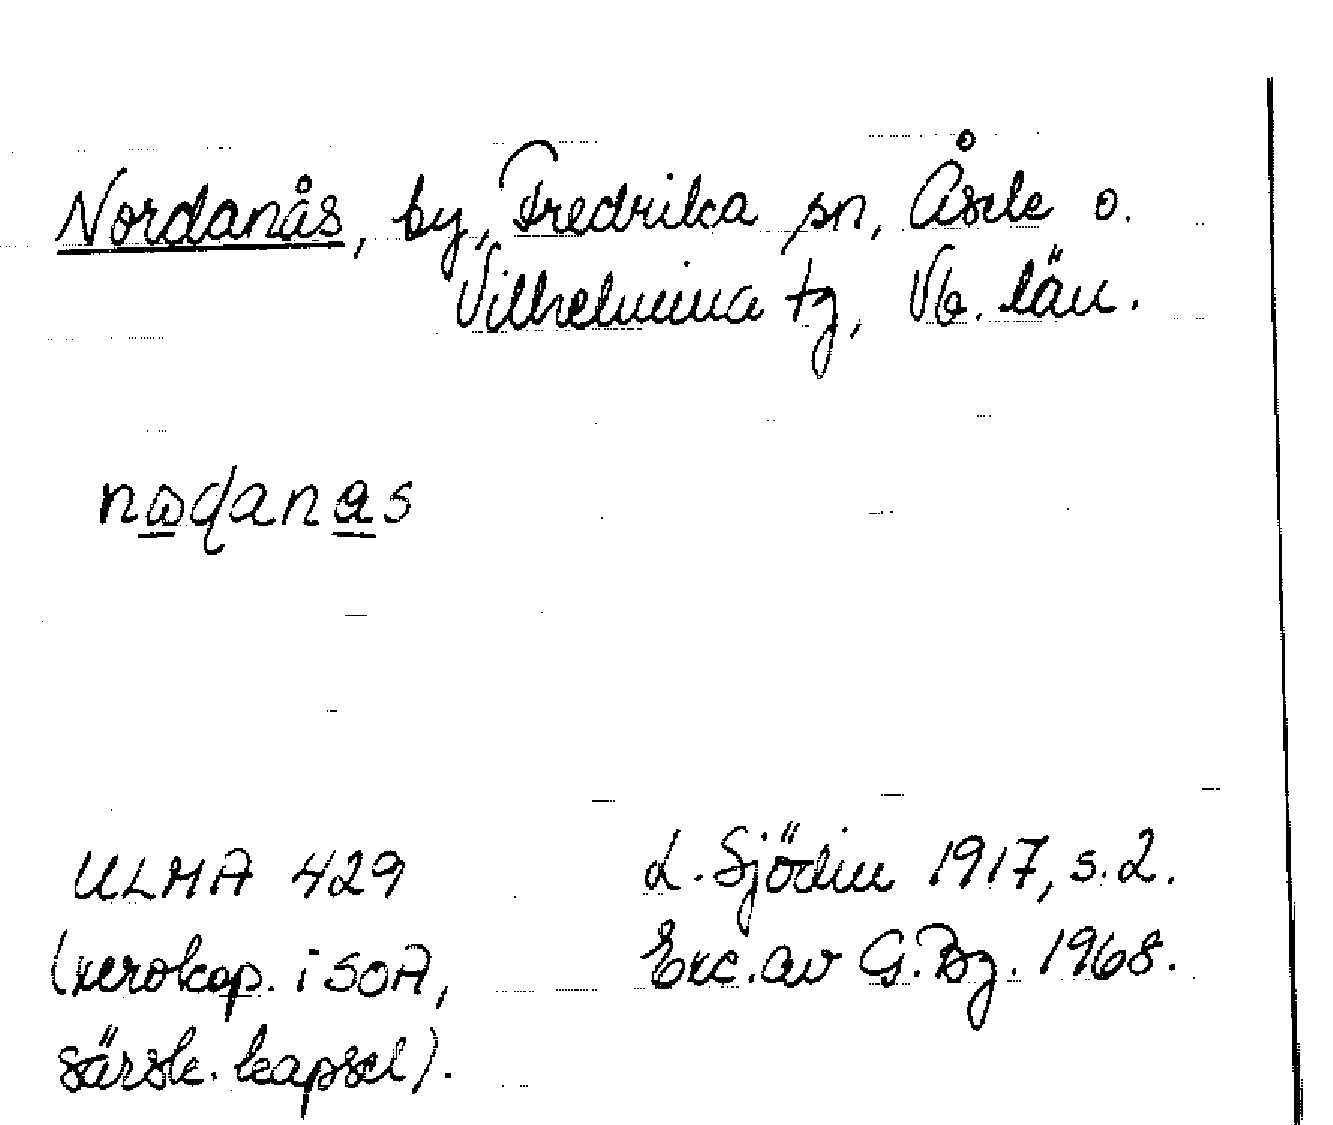 Nordanås, by, Fredrika sn, Åsele o.
Vilhelmina tg, Vb. län.
ULMA 429
L. Sjödin 1917, s. 2.
(xerokop. i SOA,
Exc. av G. Bg. 1968.
särsk. kapsel).